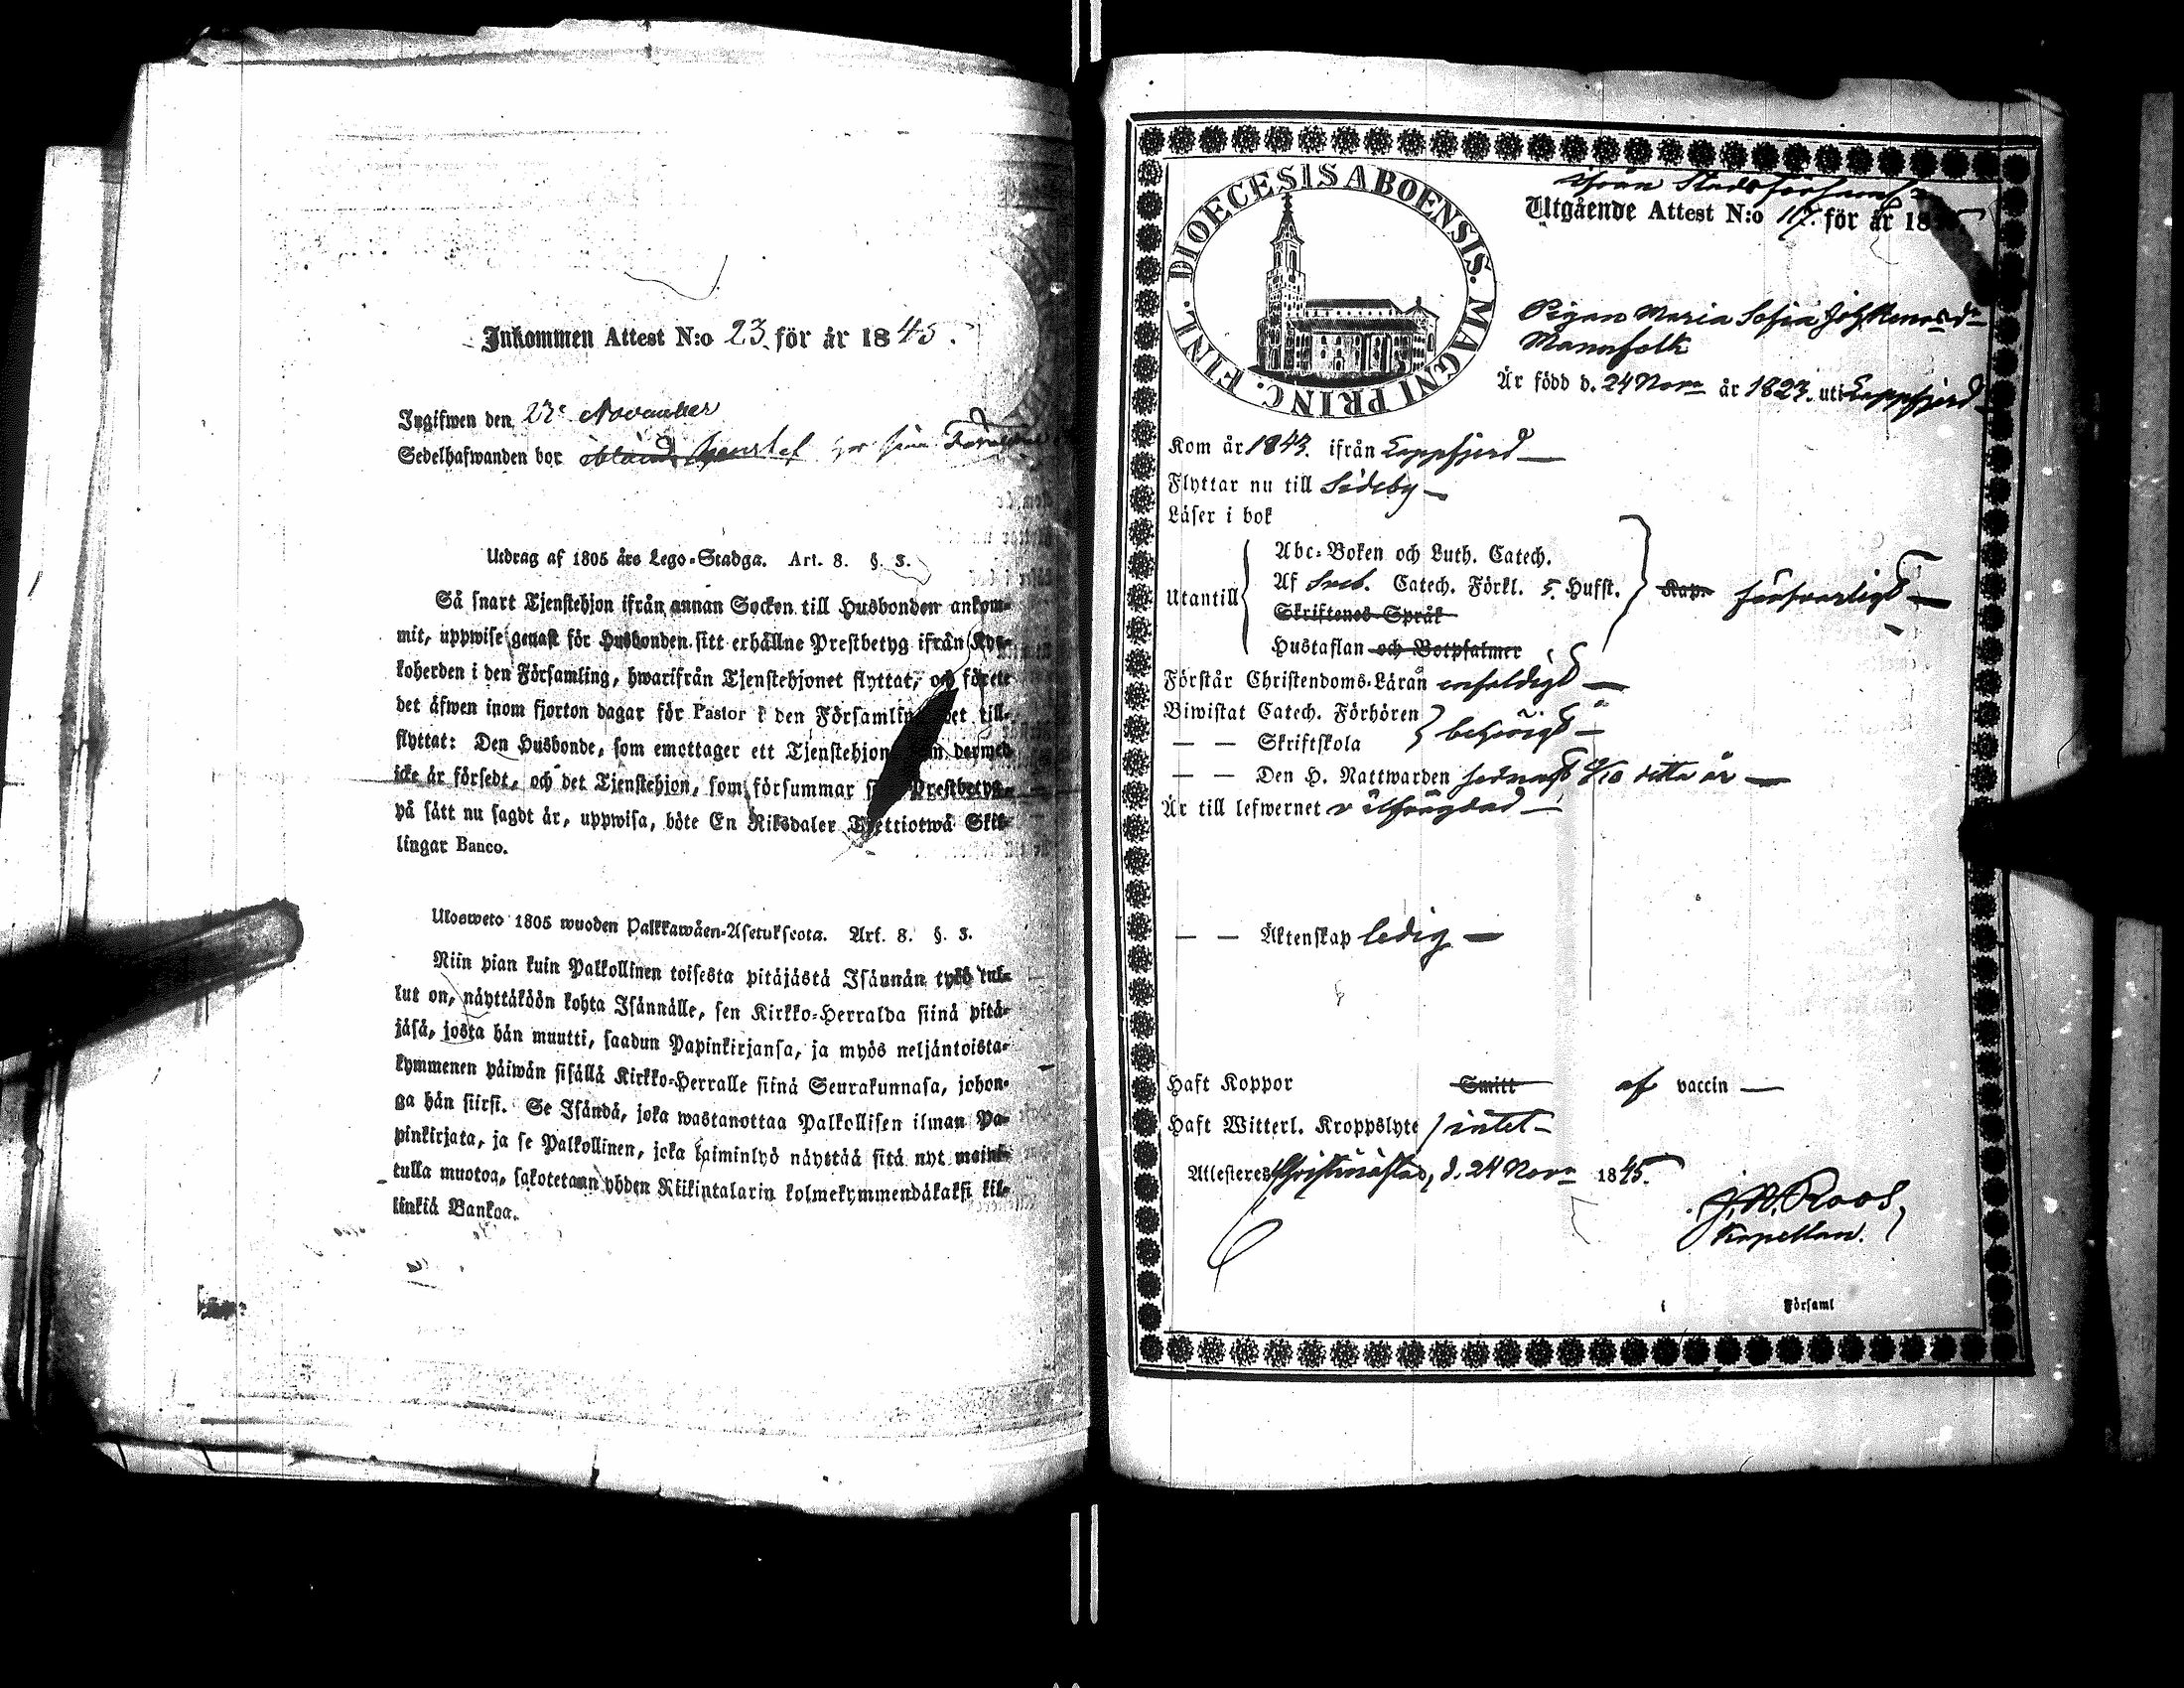 Inkommen Attest N:o 23 för år 1845.
Ingifwen den 27 November
Sedelhafwanden bor hos sina
Utdrag af 1805 års Lego-Stadga. Art. 8. §. 3.
Så snart Tjenstehjon ifrån annan Socken till Husbonden ankom-
mit, uppwise genast för Husbonden sitt erhållne Prestbetyg ifrån Kyr-
koherden i den Församling, hwarifrån Tjenstehjonet flyttat, och förete
det äfwen inom fjorton dagar för Pastor i den Församling det till-
flyttat: Den Husbonde, som emottager ett Tjenstehjon dermed
icke är försedt, och det Tjenstehjon, som försummar Prestbetyg,
på sätt nu sagdt är, uppwisa, böte En Riksdaler Trettiotwå Skil-
lingar Banco.
Ulosweto 1805 wuoden Palkkawäen-Asetuksesta. Art. 8. §. 3.
Niin pian kuin Palkollinen toisesta pitäjästä Isännän tykö tul-
lut on, näyttäköön kohta Isännälle, sen Kirkko-Herralda siinä pitä-
jäsä, josta hän muutti, saadun Papinkirjansa, ja myös neljäntoista-
kymmenen päiwän sisällä Kirkko-Herralle siinä Seurakunnasa, johon-
ga hän siirsi. Se Isändä, joka wastanottaa Palkollisen ilman Pa-
pinkirjata, ja se Palkollinen, joka laiminlyö näyttää sitä nyt maini-
tulla muotoa, sakotetaan yhden Riikintalarin kolmekymmendäkaksi kil-
linkiä Bankoa.
DIOECESIS ABOENSIS. MAGNI PRINC. FINL.
ifrån Stadsförsaml
Utgående Attest N:o 117. för år 1845.
Pigan Maria Sofia
Mannfolk
Är född d. 24 Nov. år 1823. uti Lappfjerd
Kom år 1843. ifrån Lappfjerd
Flyttar nu till Sideby
Läser i bok
Utantill
Abc-Boken och Luth. Catech.
Af Sveb. Catech. Förkl. 5. Hufst.
Skriftenes Språk
Hustaflan och Botpsalmer
Kap. försvarligt
Förstår Christendoms-Läran enfaldigt
Biwistat Catech. Förhören
— — Skriftskola
behörigt
— — Den H. Nattwarden sednast /10 detta år
Är till lefwernet oälfrägdad
— — Äktenskap ledig
Haft Koppor Smitt af vaccin
Haft Witterl. Kroppslyte intet
Attesteres Christinæstad, d. 24 Nov. 1845.
J. N. Roos,
Kapellan.
i Församl